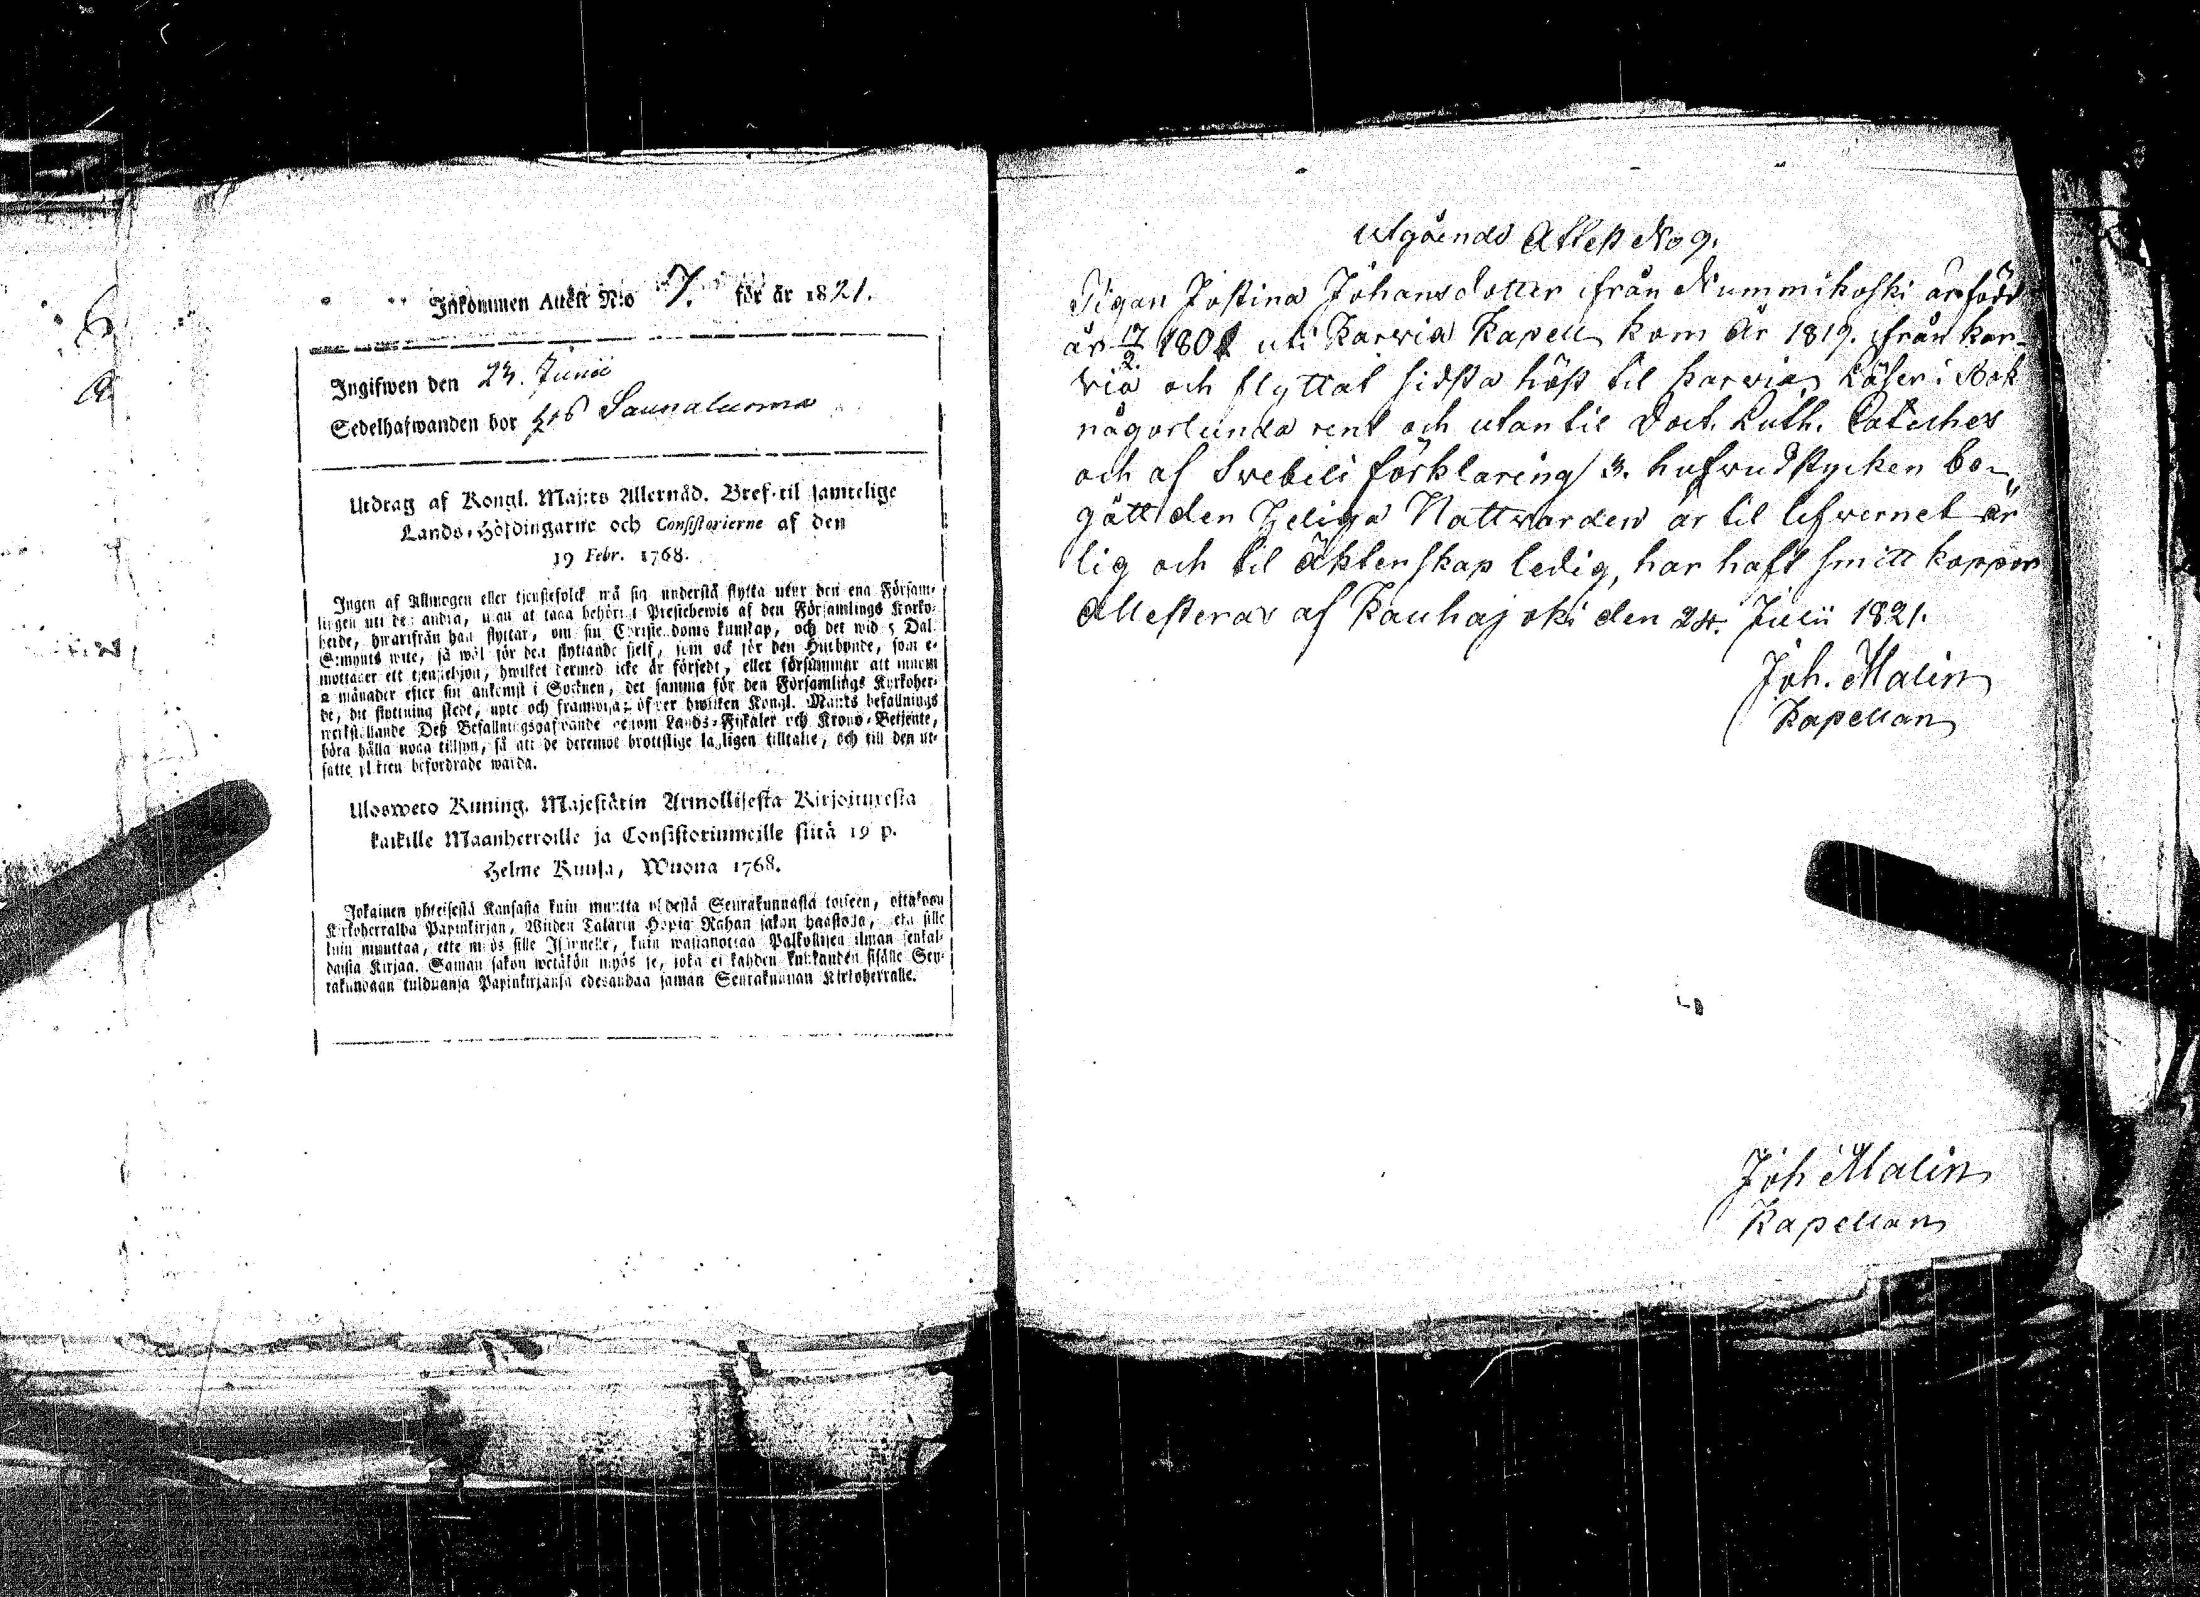 Inkommen Attest N:o 7. för år 1821.
Ingifwen den 23. Junii
Sedelhafwanden bor hos Saunaluoma
Utdrag af Kongl. Maj:ts Allernåd. Bref til samtelige
Lands-Höfdingarne och Consistorierne af den
19 Febr. 1768.
Ingen af Allmogen eller tjenstefolck må sig understå flytta utur den ena Försam-
lingen uti den andra, utan at taga behörigt Prestebewis af den Församlings Kyrko-
herde, hwarifrån han flyttar, om sin Christendoms kunskap, och det wid 5 Dal.
S:mynts wite, så wäl för den flyttande sielf, som ock för den Husbonde, som e-
mottager ett tjenstehjon, hwilket dermed icke är försedt, eller försummar att innom
2 månader efter sin ankomst i Socknen, det samma för den Församlings Kyrkoher-
de, dit flyttning skedt, upte och framwisa; öfwer hwilken Kongl. Maj:ts befallnings
werkställande Deß Befallningshafwande genom Lands-Fiskaler och Krono-Betjente,
böra hålla noga tillsyn, så att de deremot brottslige lagligen tilltalte, och till den ut-
satte plikten befordrade warda.
Ulosweto Kuning. Majestätin Armollisesta Kirjoituxesta
kaikille Maanherroille ja Consistoriumeille siitä 19 p.
Helme Kuusa, Wuona 1768.
Jokainen yhteisestä Kansasta kuin muutta yhdestä Seurakunnasta toiseen, ottakoon
Kirkoherralda Papinkirjan, Wiiden Talarin Hopia Rahan sakon haastolla, sekä sille
kuin muuttaa, ette myös sille Isännelle, kuin wastanottaa Palkollisen ilman senkal-
daista Kirjaa. Saman sakon wetäkön myös se, joka ei kahden kuukauden sisälle Seu-
rakundaan tulduansa Papinkirjansa edesandaa saman Seurakunnan Kirkoherralle.
Utgående Attest No 9.
Pigan Justina Johansdotter från Nummikoski är född
år 17/2. 1801 uti Karvia Kapell kom År 1819. från Kar-
via och flyttat sidsta höst til Parvia Läser i Bok
någorlunda rent och utantil Doct. Luth. Catéches
och af Svebili förklaring 3. hufvudstycken be-
gått den Heliga Nattvarden är til lefvernet är
lig och til äktenskap ledig, har haft smitt koppor
Attesteras af Kauhajoki den 24. Julii 1821.
Joh. Malin
Kapellan
Joh Malin
Kapellan